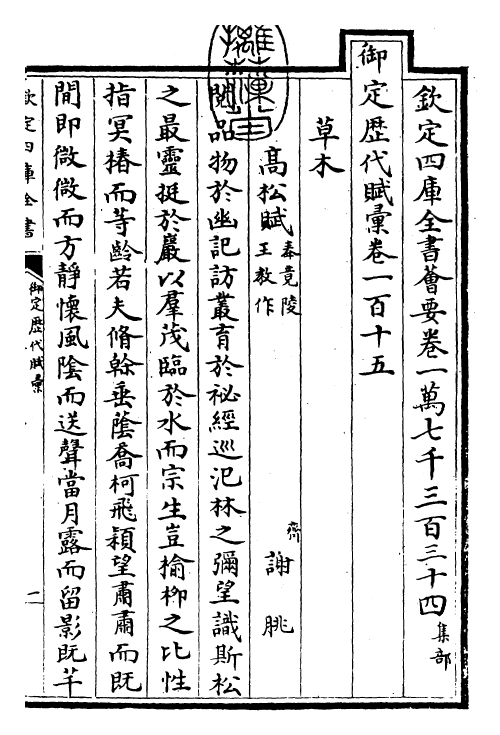 欽定四庫全書薈要卷一萬七千三百三十四集部
御定歴代賦彙卷一百十五
草木
高松賦奉竟陵王教作 齊 謝朓
閱品物於幽記訪叢育於祕經巡汜林之彌望識斯松
之最靈挺於巖以羣茂臨於水而宗生豈榆柳之比性
指冥椿而等齡若夫脩榦垂蔭喬柯飛穎望肅肅而既
閒即微微而方靜懷風陰而送聲當月露而留影既芊
欽定四庫全書
御定歴代賦彙